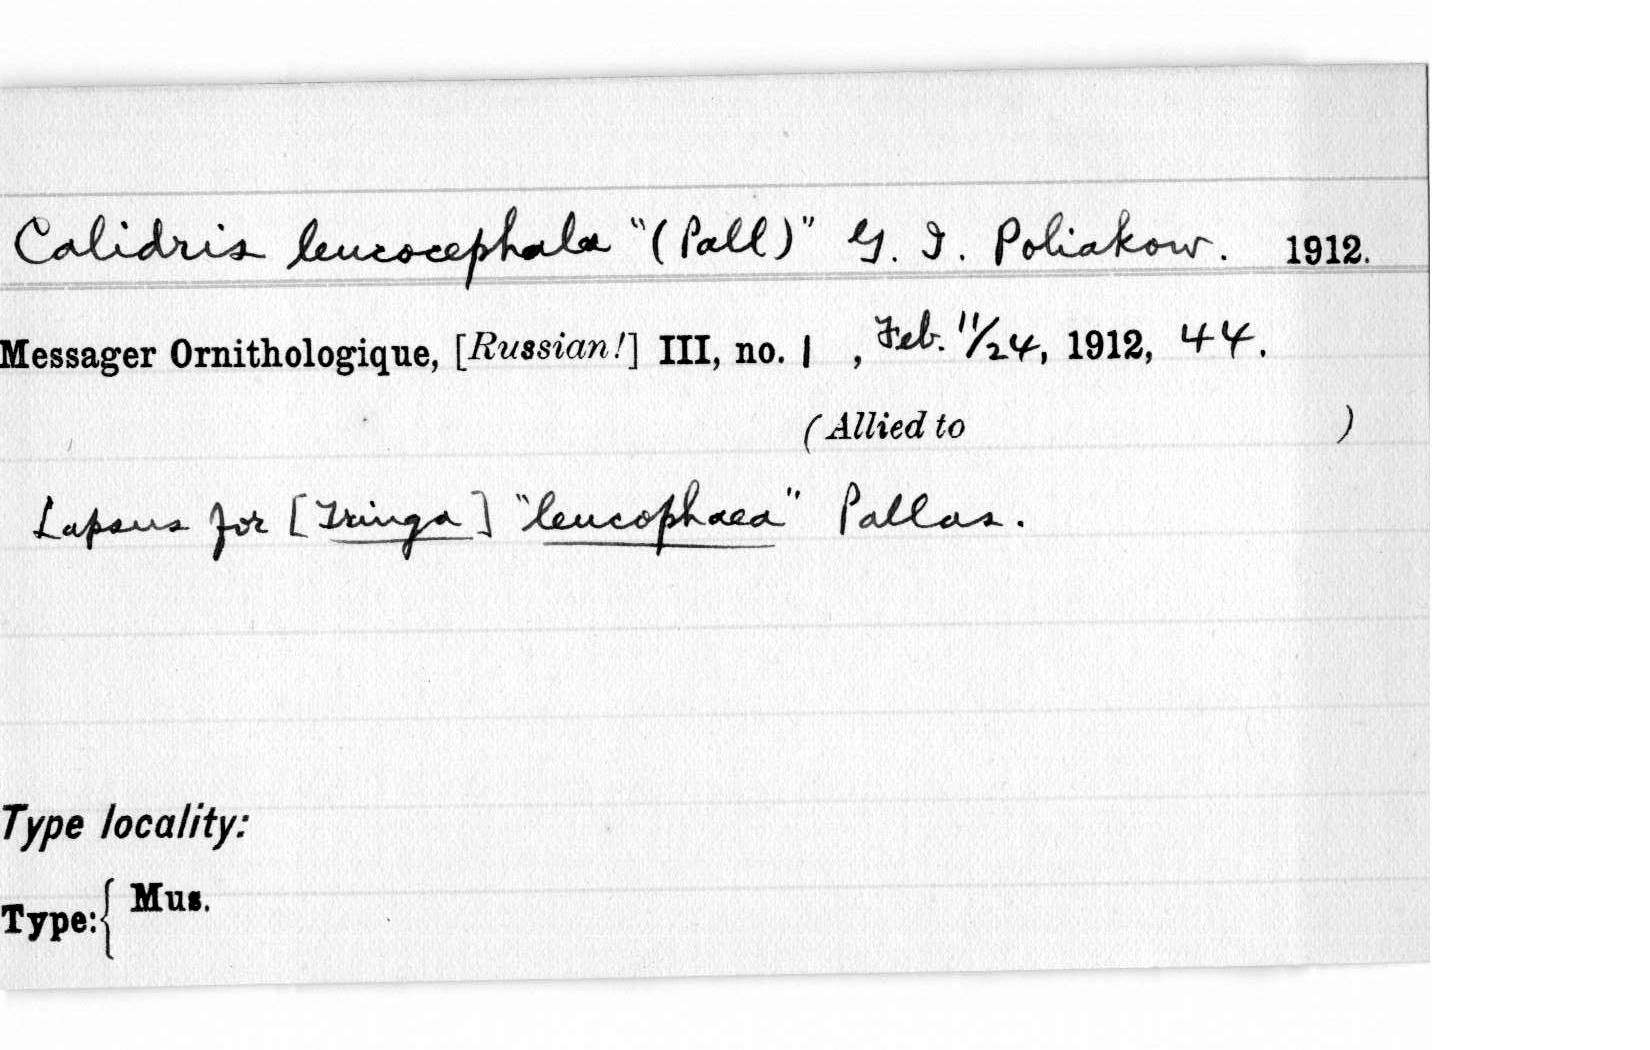 Calidris leucocephala "(Pall)" G. I. Poliakow. 1912.
Messager Ornithologique, [Russian!] III, no. 1 , Feb. 11/24, 1912, 44.
(Allied to )
Lapsus for [Tringa] "leucophaea" Pallas.
Type locality:
Type:{ Mus.